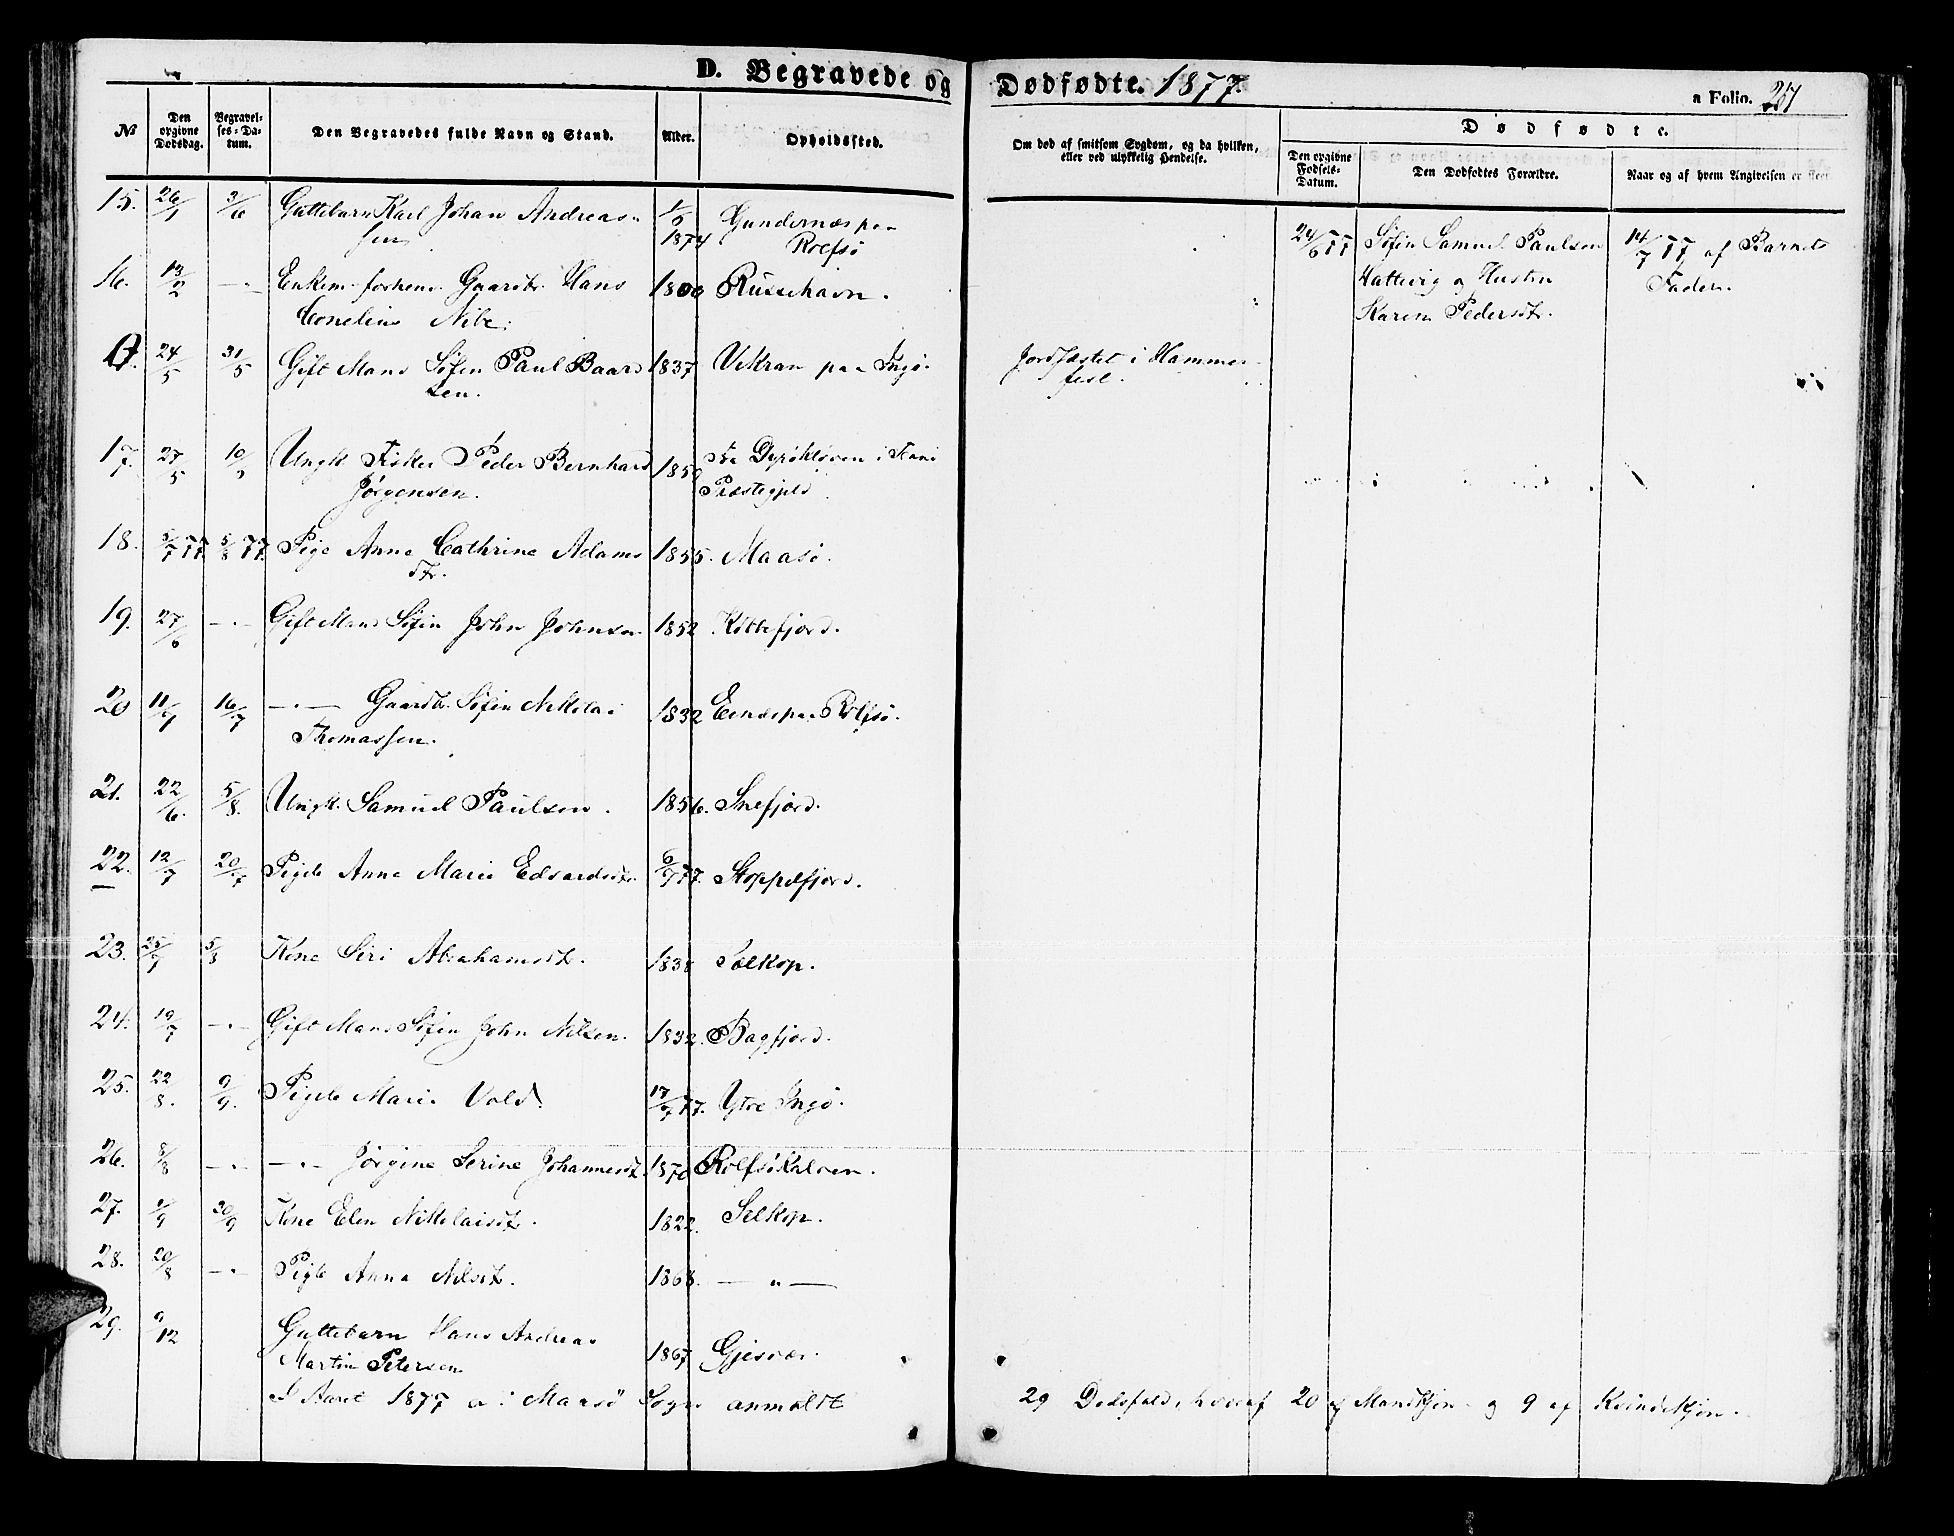 D. Begravede og Dødfødte. 1877.
a Folio. 27
No
Den opgivne Dødsdag.
Begravelses-Datum.
Den Begravedes fulde Navn og Stand.
Alder.
Opholdssted.
Om død af smitsom Sygdom, og da hvilken, eller ved ulykkelig Hendelse.
Dødfødte.
Den opgivne Fødsels-Datum.
Den Dødfødtes Forældre.
Naar og af hvem Angivelsen er skeet
15. 26/1 3/6 Guttebarn Karl Johan Andreas- 1/5 1874 Gundernæs paa
sen Rolfsø
24/6 77 Søfin Samuel Paulsen 14/7 77 af Barnets
Hattevig og Hustru Fader.
Karen Pedersdtr.
16. 13/2 —"— Enkem. forhenv. Gaardbr. Hans 1800 Russehavn.
Cornelius Nibe.
0. 24/5 31/5 Gift Mand Søfin Paul Baard 1837 Vikran paa Ingø. Jordfæstet i Hammer-
sen. fest.
17. 27/5 10/ Ungk. Fisker Peder Bernhard 185 Fra i
Jørgensen. Præstegjeld.
18. 3/7 77 5/8 77. Pige Anna Cathrine Adams 1855. Maasø.
dtr.
19. 27/6 —"— Gift Mand Søfin John Johnsen 1852 Kobbefjord.
20 11/ 16/7 —"— Gaardbr. Søfin Nikolai 1832 paa Rolfsø.
Thomassen.
21. 22/6. 5/8. Ungk. Samuel Paulsen. 1856. Snefjord.
22. 12/7 20/7 Pigeb Anna Marie Edvardsdtr. 6/ 77. Stoppelfjord.
23. 25/7 5/8 Kone Siri Abrahamsdtr. 1838 Selkop.
24. 19/7 —"— Gift Mand Søfin John Nilsen. 1832. Bagfjord.
25. 22/8. 9/9. Pigeb Marie Vold. 17/ 77. Ytre Ingø.
26. 8/8 —"— —"— Jørgine Serine Johannesdtr. 1870 Rolfsøhalvøen.
27. /9 30/9 Kone Elen Nikolaisdtr. 1822. Selkop.
28. 20/8 —"— Pigb Anna Nilsdtr. 1868. —"—
29. 9/12 Guttebarn Hans Andreas
Martin Petersen 1867 Gjesvær.
I Aaret 1877 er i Maasø Sogn anmeldt 29 Dødsfald, hvoraf 20 af Mandkjøn og 9 af Kvindekjøn.